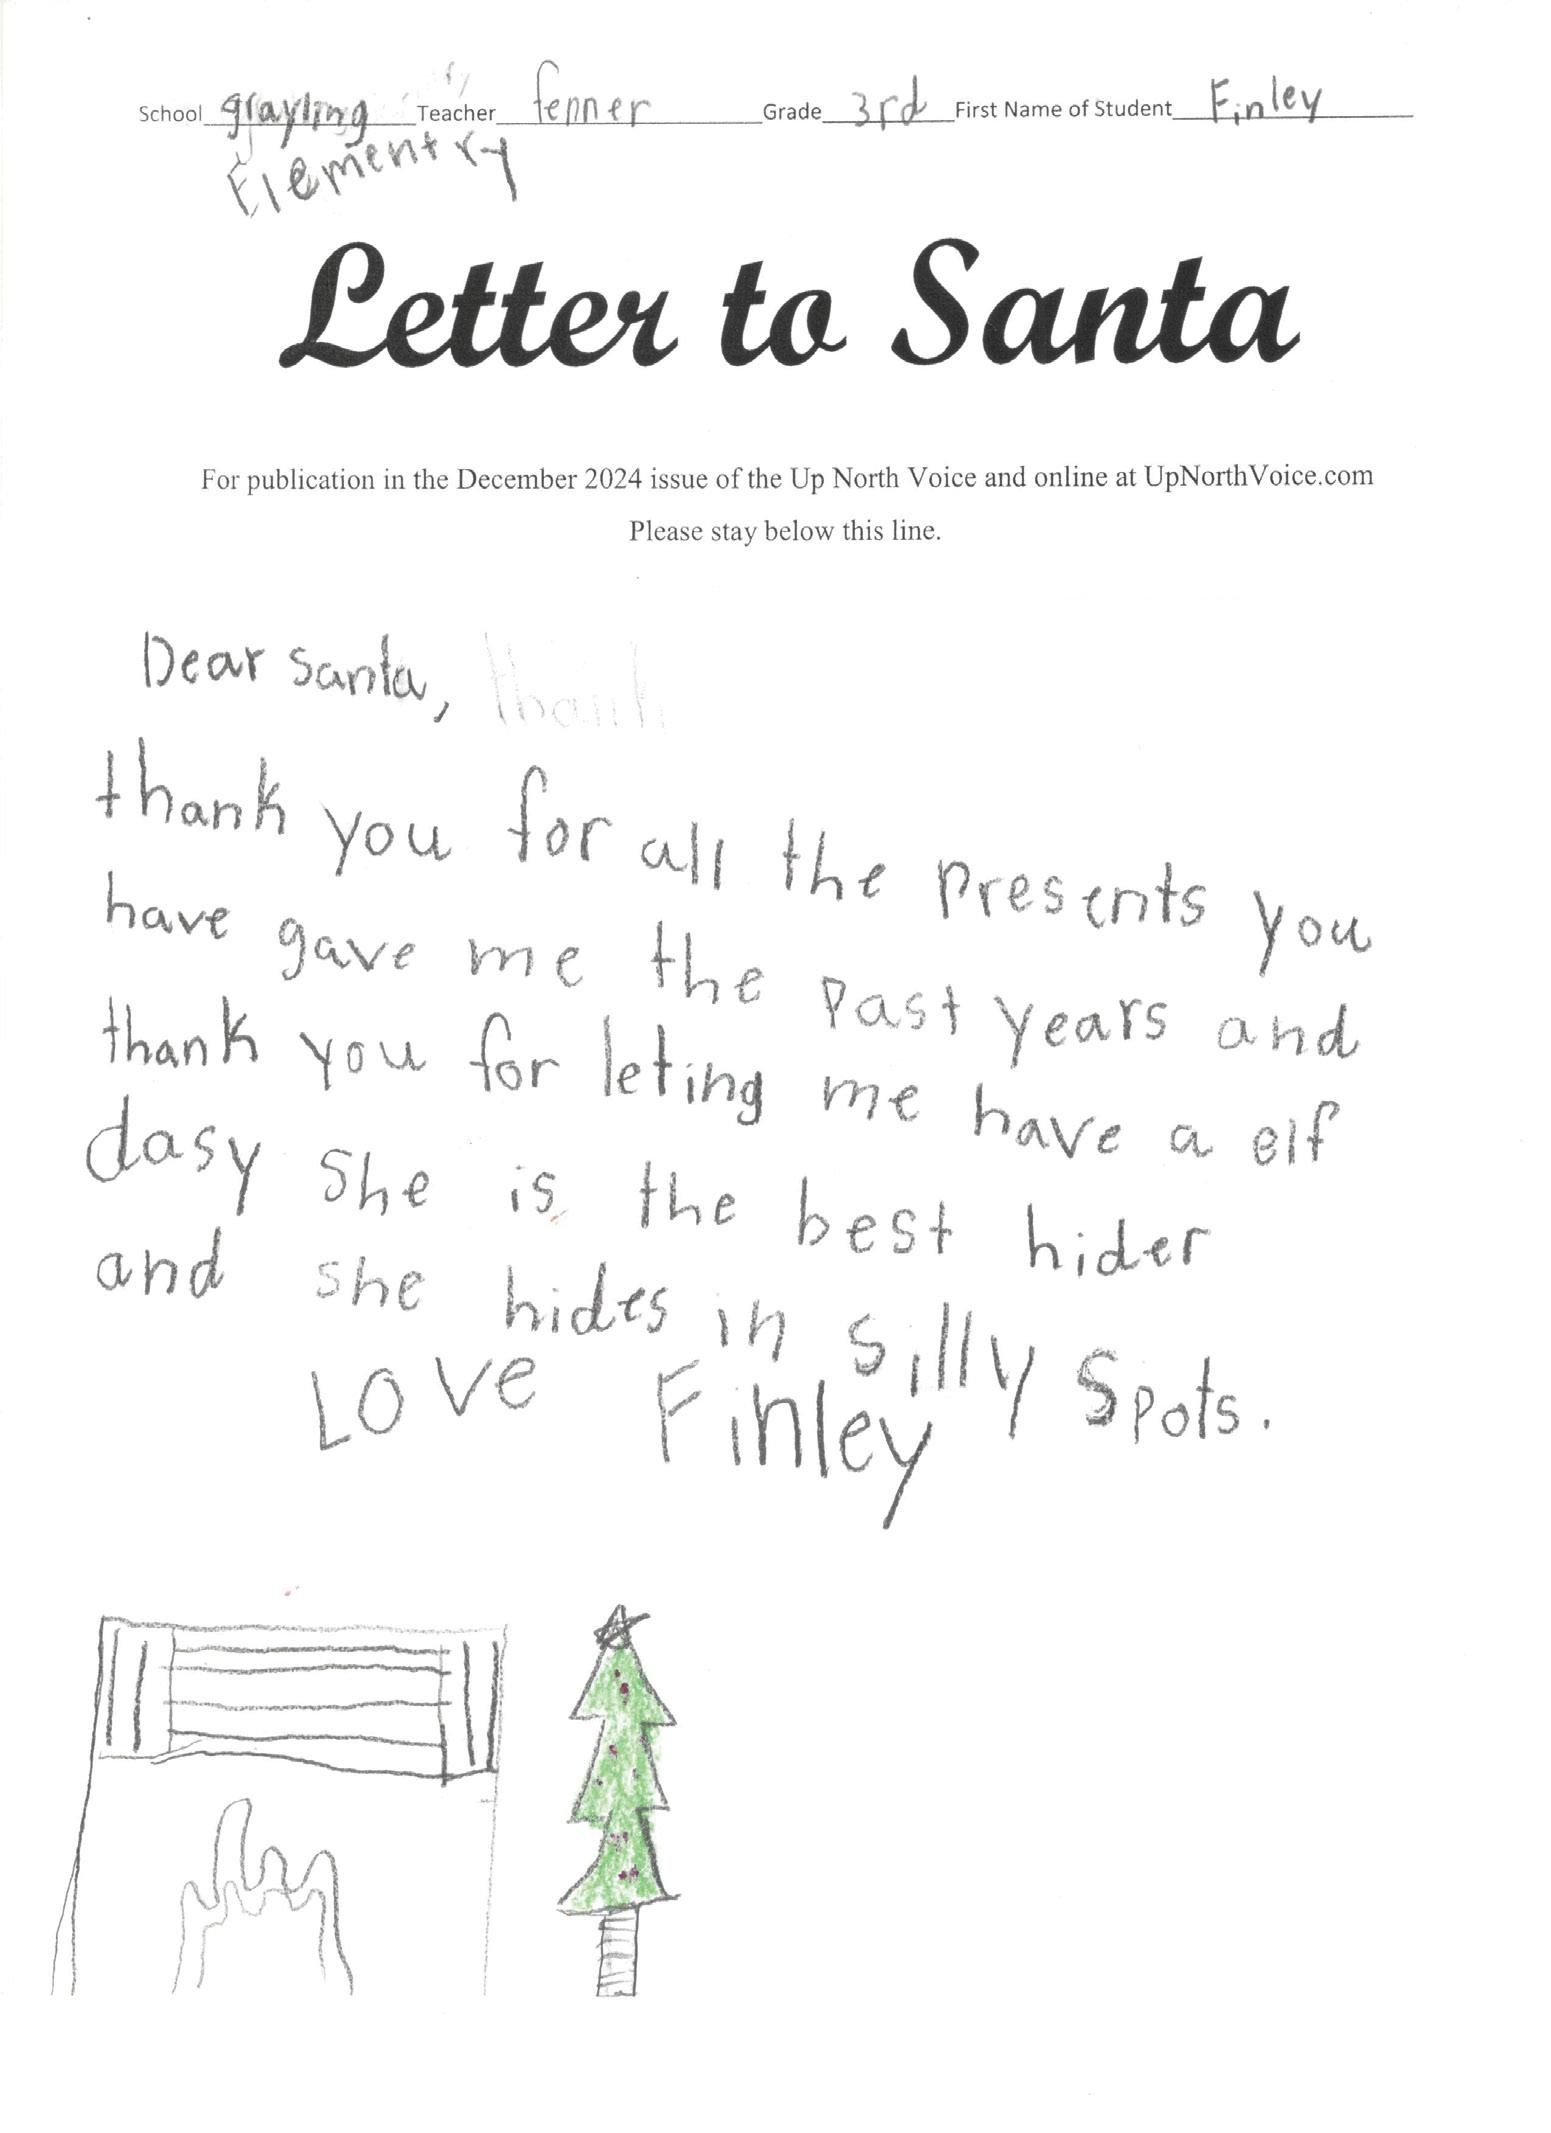 School grayling Teacher fenner Grade 3rd First Name of Student Finley
Elementry
Letter to Santa
For publication in the December 2024 issue of the Up North Voice and online at UpNorthVoice.com
Please stay below this line.
Dear Santa, thank
thank you for all the presents you
have gave me the past years and
thank you for leting me have a elf
dasy She is the best hider
and she hides in silly spots.
Love Finley